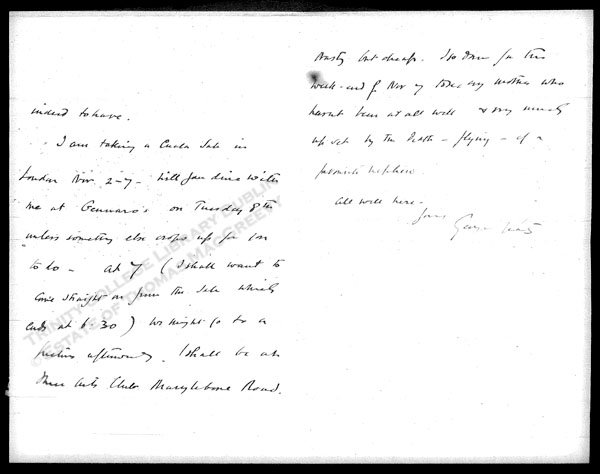 indeed to have.
I am taking a Cuala Sale in
London Nov. 2-7- Will you dine with
me at Gennaro's on Tuesday 8th
unless something else crops up for you
to do - at 7 (I shall want to
come straight on from the Sale which
ends at 6.30) We might go to a
picture afterwards. I shall be at
Three Arts Club Marylebone Road.
nasty but cheap. I go down for the
week-end of Nov 7 to see my mother who
hasnt been at all well & very much
upset by the death - flying - of a
favourite nephew
All well here.
Yours
George Yeats
TRINITY COLLEGE LIBRARY DUBLIN
© ESTATE OF THOMAS MACGREEVY